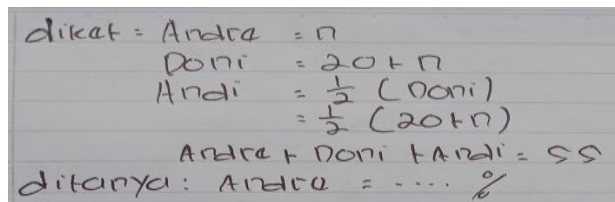 diket = Andra = n
Doni = 20 + n
Andi = 1/2 (Doni)
= 1/2 (20+n)
Andra + Doni + Andi = 55
ditanya : Andra = .... %